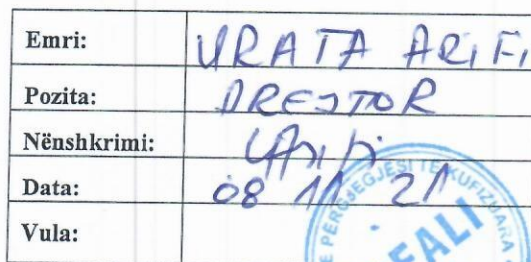 Emri: URATA ARIFI
Pozita: DREJTOR
Nënshkrimi:
Data: 08 11 21
Vula:
E PERGJEGJËSI TË KUFIZUARA
FALI